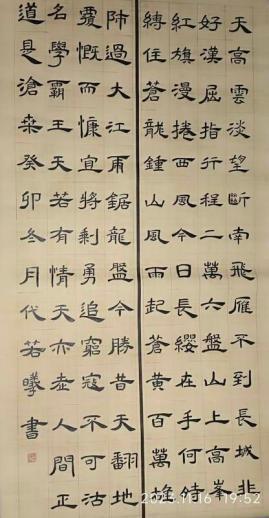 天高雲淡望斷南飛雁不到長城非
好漢屈指行程二萬六盤山上高峯
紅旗漫捲西風今日長纓在手何時
縛住蒼龍鍾山風雨起蒼黃百萬雄
師過大江虎踞龍盤今勝昔天翻地
覆慨而慷宜將剩勇追窮寇不可沽
名學霸王天若有情天亦老人間正
道是滄桑癸卯冬月代若曦書
2023.11.16 19:52